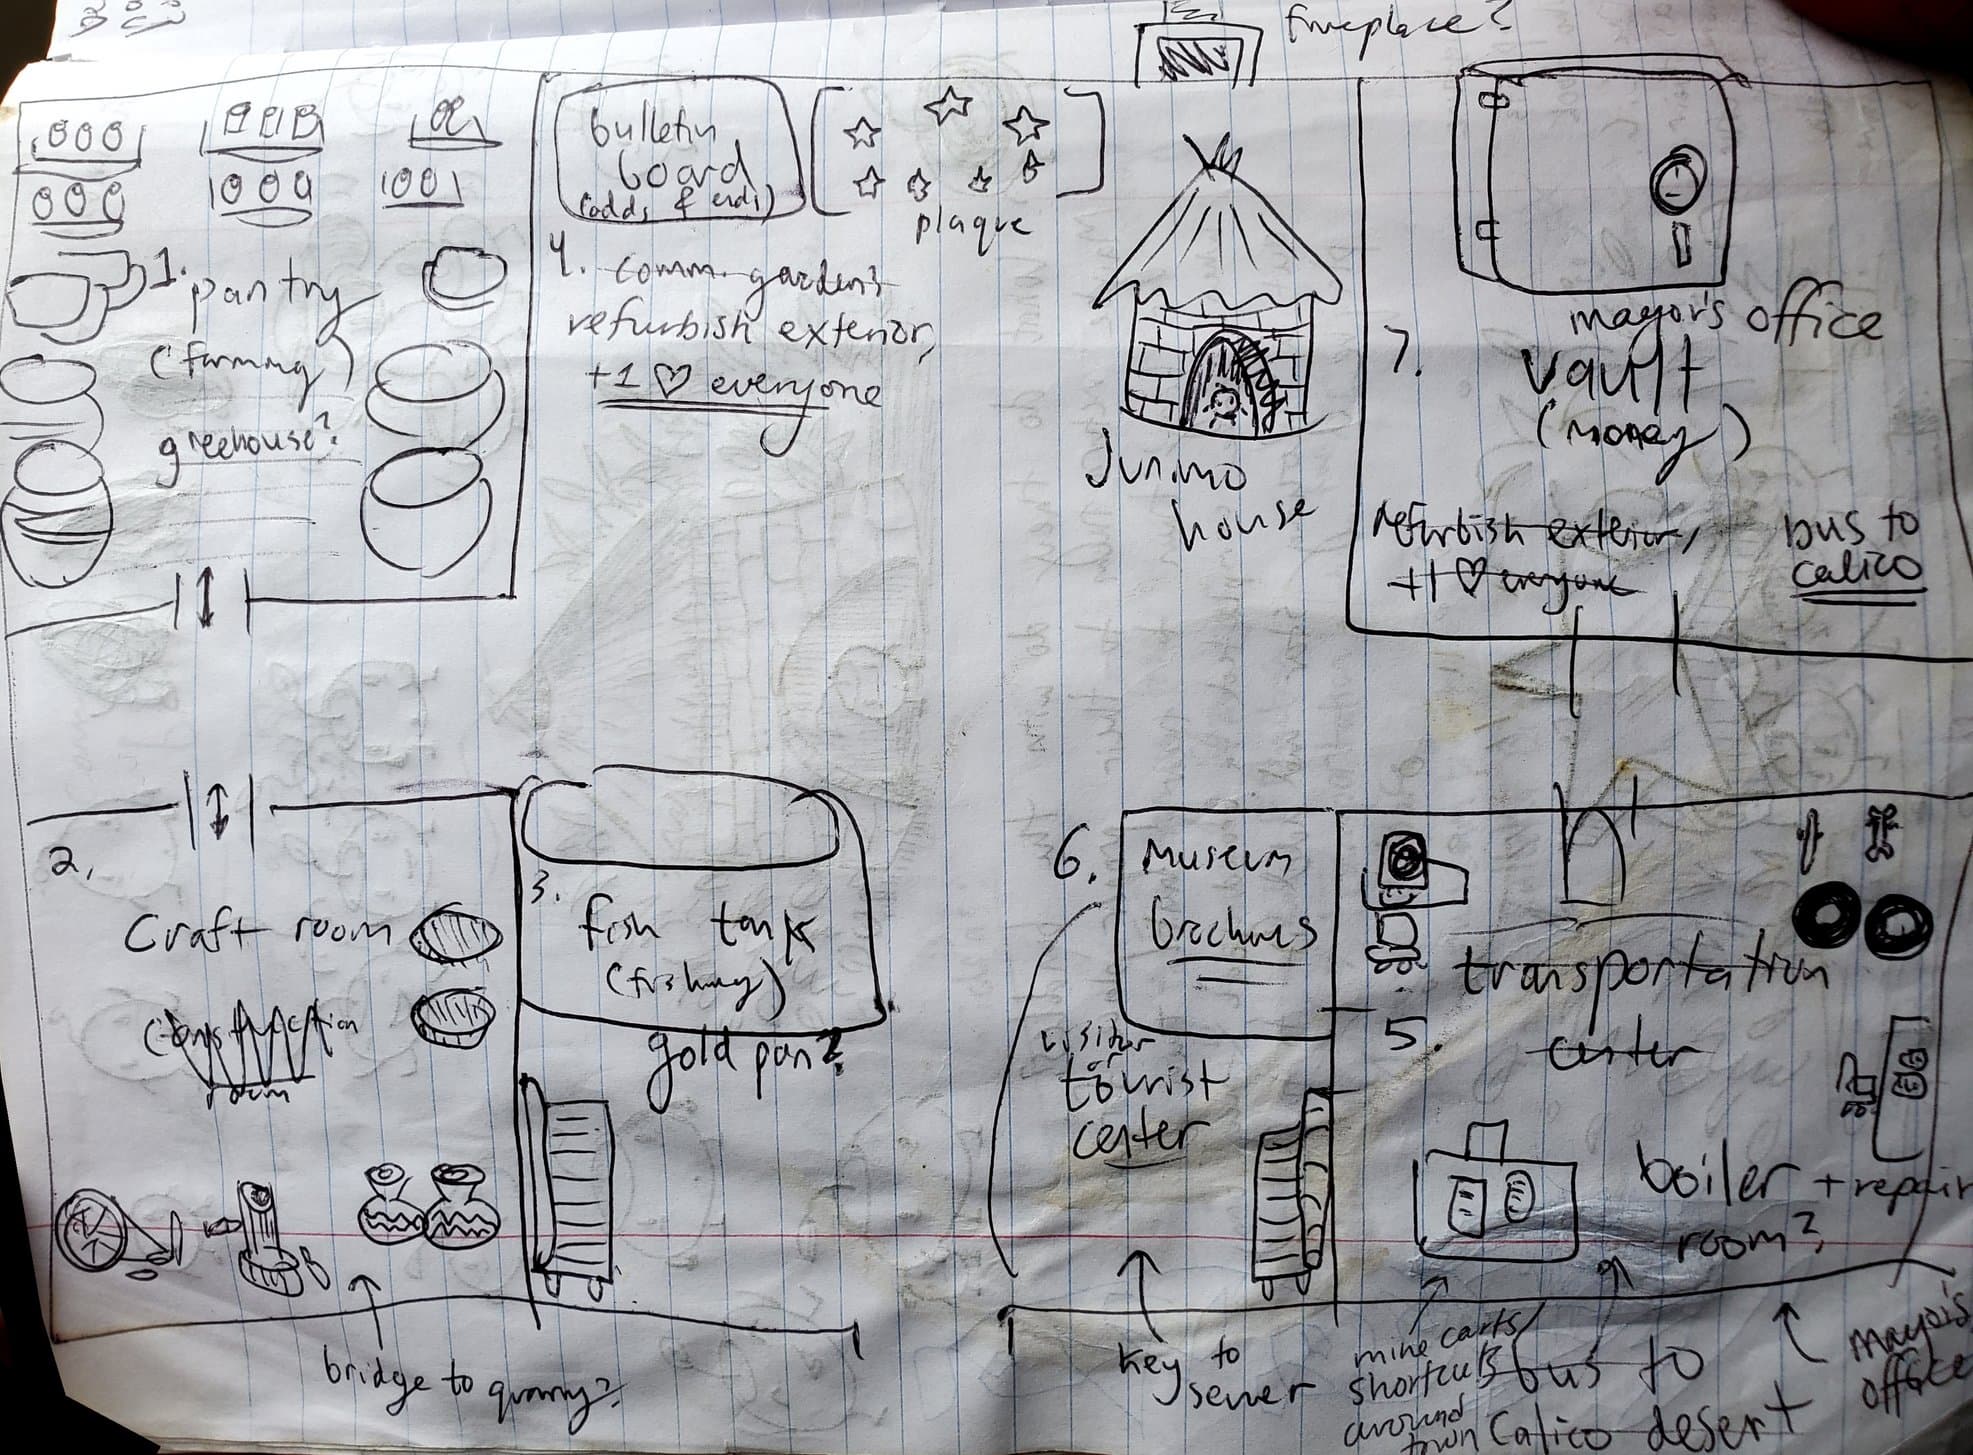 fireplace?
bulletin
board
(odds & ends)
plaque
1. pantry
(farming)
greehouse?
4. comm. gardens
refurbish exterior,
+1 ♡ everyone
Junimo
house
mayor's office
7. vault
(money)
refurbish exterior,
+1 ♡ everyone
bus to
calico
2.
Craft room
(construction
room
3.
fish tank
(fishing)
gold pan?
6. museum
brochures
visitor
or
tourist
center
5.
transportation
center
boiler + repair
room?
bridge to quarry?
key to
sewer
mine carts/
shortcuts
around
town
bus to
Calico desert
mayor's
office